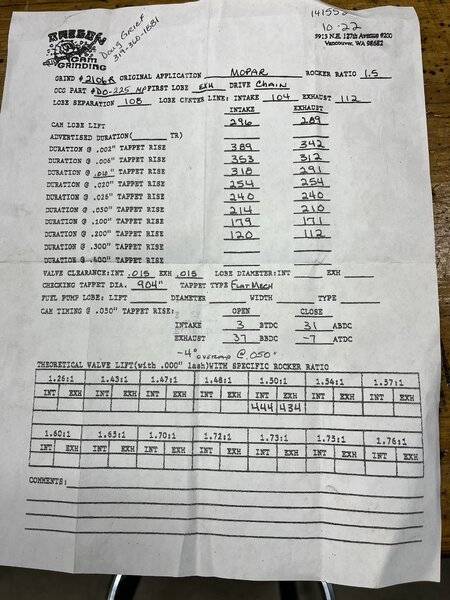 OREGON
CAM
GRINDING
Doug Grief
319-360-1881
10-22
5913 N.E. 127th Avenue #200
Vancouver, WA 98682
GRIND #2106R ORIGINAL APPLICATION MOPAR ROCKER RATIO 1.5
OCG PART #DO-225 FIRST LOBE EXH DRIVE Chain
LOBE SEPARATION 108 LOBE CENTER LINE: INTAKE 104 EXHAUST 112
INTAKE EXHAUST
CAM LOBE LIFT 296 289
ADVERTISED DURATION( TR)
DURATION @ .002" TAPPET RISE 389 342
DURATION @ .006" TAPPET RISE 353 312
DURATION @ .010" TAPPET RISE 318 291
DURATION @ .020" TAPPET RISE 254 254
DURATION @ .026" TAPPET RISE 240 240
DURATION @ .050" TAPPET RISE 214 210
DURATION @ .100" TAPPET RISE 179 171
DURATION @ .200" TAPPET RISE 120 112
DURATION @ .300" TAPPET RISE
DURATION @ .400" TAPPET RISE
VALVE CLEARANCE: INT .015 EXH .015 LOBE DIAMETER: INT EXH
CHECKING TAPPET DIA. 904" TAPPET TYPE Flat Mech
FUEL PUMP LOBE: LIFT DIAMETER WIDTH TYPE
CAM TIMING @ .050" TAPPET RISE: OPEN CLOSE
INTAKE 3 BTDC 31 ABDC
EXHAUST 37 BBDC -7 ATDC
-4° overlap @ .050"
THEORETICAL VALVE LIFT(with .000" lash)WITH SPECIFIC ROCKER RATIO
1.26:1 1.43:1 1.47:1 1.48:1 1.50:1 1.54:1 1.57:1
INT EXH INT EXH INT EXH INT EXH INT EXH INT EXH INT EXH
444 434
1.60:1 1.63:1 1.70:1 1.72:1 1.73:1 1.75:1 1.76:1
INT EXH INT EXH INT EXH INT EXH INT EXH INT EXH INT EXH
COMMENTS: